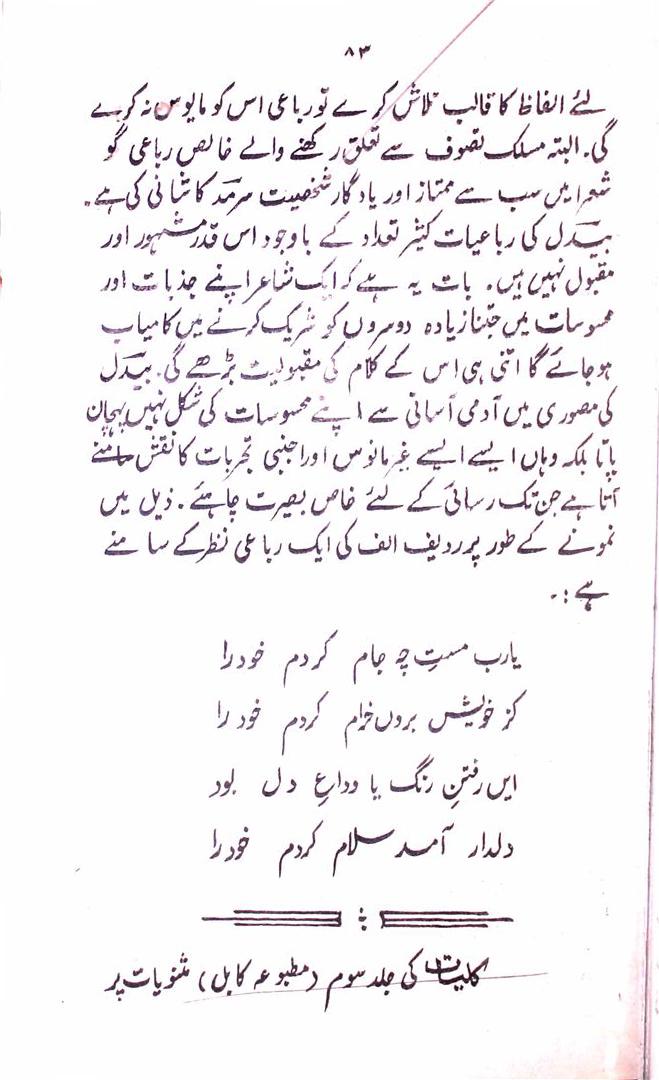 ۸۳
لئے الفاظ کا قالب تلاش کرے تو رباعی اس کو مایوس نہ کرے
گی۔ البتہ مسلک تصوف سے تعلق رکھنے والے خالص رباعی گو
شعرا میں سب سے ممتاز اور یادگار شخصیت سرمد کاشانی کی ہے۔
بیدل کی رباعیات کثیر تعداد کے باوجود اس قدر مشہور اور
مقبول نہیں ہیں۔ بات یہ ہے کہ ایک شاعر اپنے جذبات اور
محسوسات میں جتنا زیادہ دوسروں کو شریک کرنے میں کامیاب
ہو جائے گا اتنی ہی اس کے کلام کی مقبولیت بڑھے گی۔ بیدل
کی مصوری میں آدمی آسانی سے اپنے محسوسات کی شکل نہیں پہچان
پاتا بلکہ وہاں ایسے ایسے غیر مانوس اور اجنبی تجربات کا نقش سامنے
آتا ہے جن تک رسائی کے لئے خاص بصیرت چاہئے۔ ذیل میں
نمونے کے طور پر ردیف الف کی ایک رباعی نظر کے سامنے
ہے :۔
یارب مستِ چہ جام کردم خود را
کز خویش بروں خرام کردم خود را
ایں رفتنِ رنگ یا وداعِ دل بود
دلدار آمد سلام کردم خود را
کلیات کی جلد سوم (مطبوعہ کابل) مثنویات پر